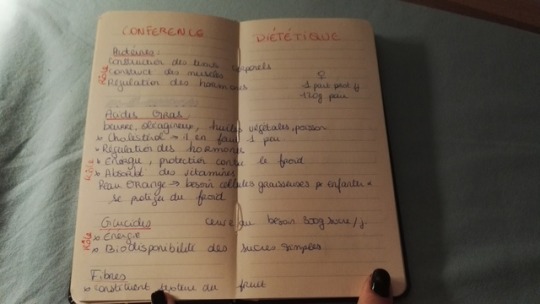 CONFERENCE DIÉTÉTIQUE
Protéines :
Construction des tissus corporels
Rôle Construct des muscles
Régulation des hormones
♀
1 part prot /j
120g
Acides Gras
beurre, oléagineux, huiles végétales, poisson
* Cholestérol → il en faut 1 peu
* Régulation des hormones
Rôle * Energie, protection contre le froid
* Absorbt des vitamines
Peau Orange → besoin cellules graisseuses pr enfanter +
se protéger du froid
Glucides besoin 300g sucre/j.
Rôle * Energie
* Biodisponibilité des sucres simples
Fibres
* Constituent du fruit